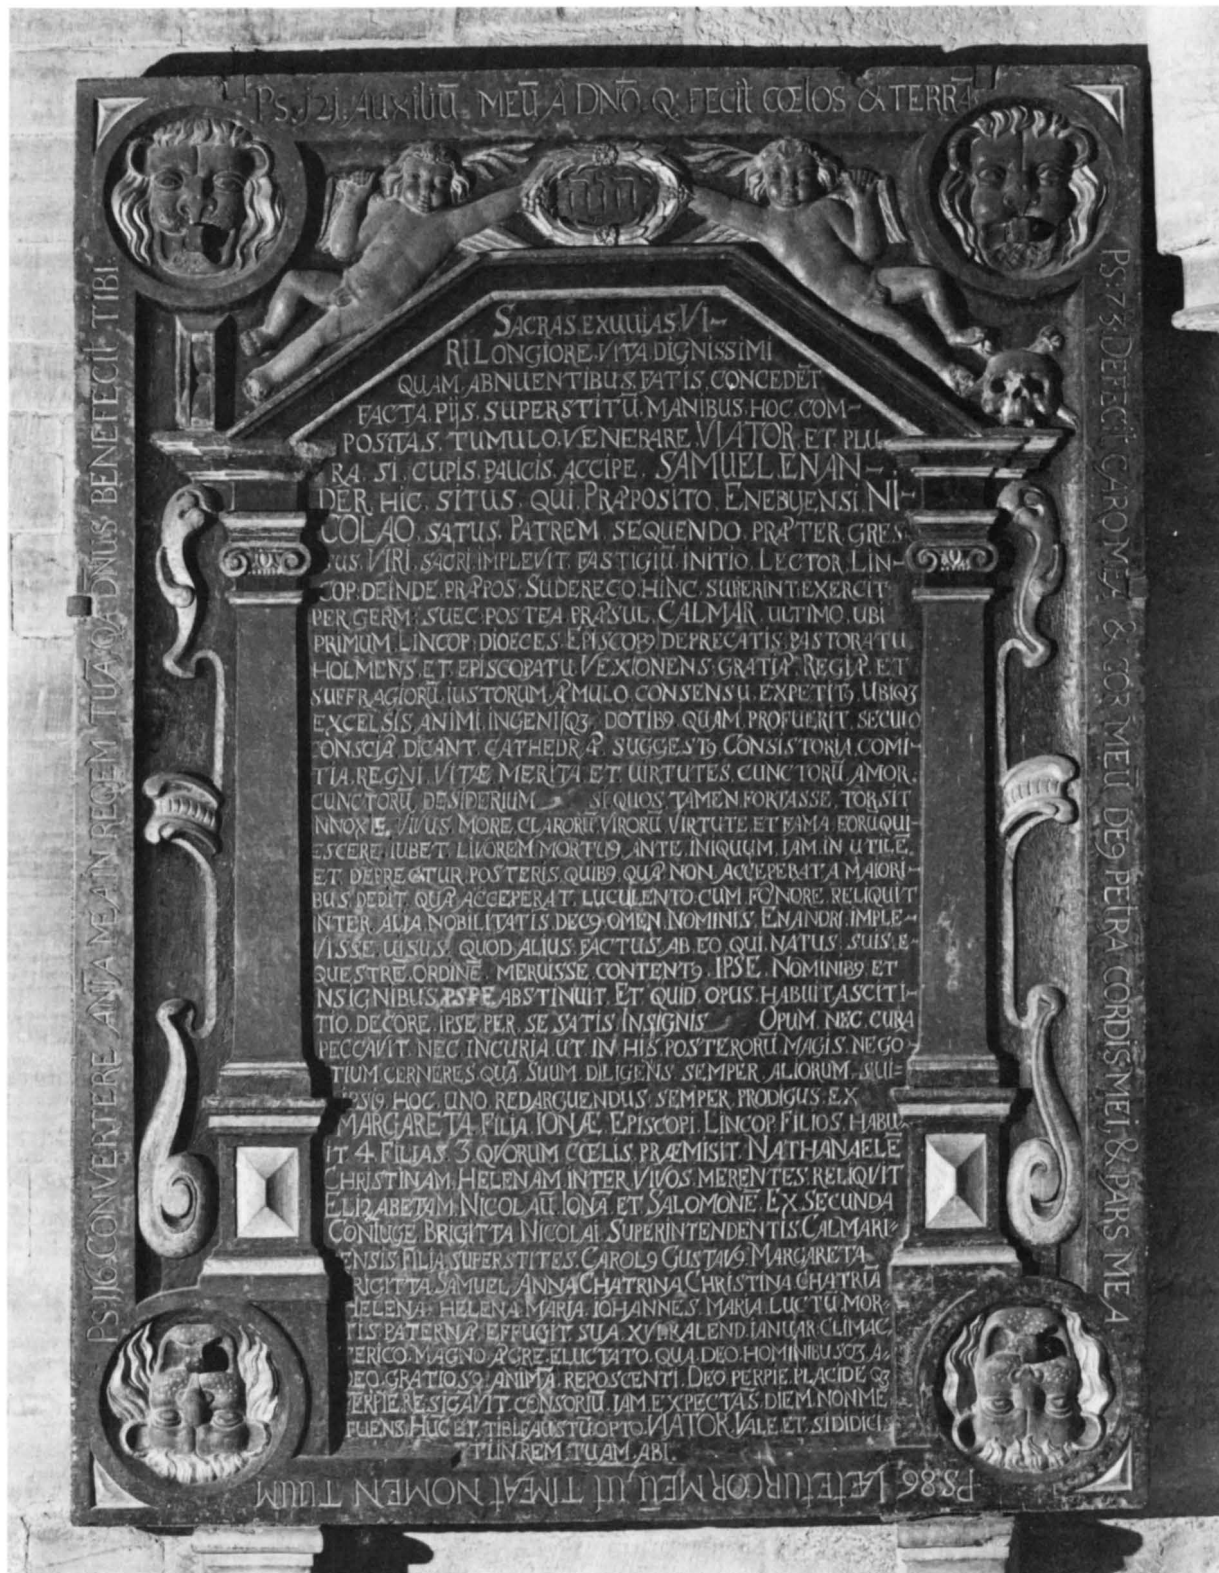 PS. 121. AUXILIŪ MEŪ A DNŌ. Q. FECIT COELOS & TERRĀ
יהוה
PS. 116. CONVERTERE ANĪA MEA IN REQEM TUĀ QA DNUS BENEFECIT TIBI.
SACRAS. EXUUIAS. VI-
RI LONGIORE. VITA DIGNISSIMI
QUAM. ABNUENTIBUS. FATIS. CONCEDĒT
FACTA. PIJS. SUPERSTITŪ. MANIBUS. HOC. COM-
POSITAS. TUMULO. VENERARE. VIATOR. ET. PLU
RA. SI. CUPIS. PAUCIS. ACCIPE. SAMUEL. ENAN-
DER HIC. SITUS. QUI. PRÆPOSITO. ENEBYENSI. NI-
COLAO. SATUS. PATREM. SEQUENDO. PRÆTER GRES
SUS. VIRI. SACRI. IMPLEVIT. FASTIGIŪ. INITIO. LECTOR. LIN-
COP. DEINDE. PRÆPOS. SUDERECO. HINC. SUPERINT. EXERCIT
PER GERM: SUEC. POSTEA. PRÆSUL. CALMAR. ULTIMO. UBI
PRIMUM. LINCOP. DIOECES. EPISCOP9. DEPRECATIS. PASTORATU
HOLMENS. ET. EPISCOPATU. VEXIONENS. GRATIÆ. REGIÆ. ET
SUFFRAGIORŪ. IUSTORUM. ÆMULO. CONSENSU. EXPETIT9. UBIQ3
EXCELSIS. ANIMI. INGENIJQ3. DOTIB9. QUAM. PROFUERIT. SECULO
CONSCIA. DICANT. CATHEDRÆ. SUGGEST9. CONSISTORIA. COMI-
TIA. REGNI. VITÆ MERITA. ET. UIRTUTES. CUNCTORŪ. AMOR.
CUNCTORŪ. DESIDERIUM SI. QUOS. TAMEN. FORTASSE. TORSIT
NNOXIE. VIVUS. MORE. CLARORŪ. VIRORŪ. VIRTUTE. ET. FAMA. EORU. QUI-
ESCERE. IUBET. LIVOREM. MORTU9. ANTE. INIQUUM. IAM. IN UTILĒ
ET. DEPRECATUR. POSTERIS. QUIB9. QUÆ. NON. ACCEPERAT. A MAIORI-
BUS. DEDIT. QUÆ. ACCEPERAT. LUCULENTO. CUM. FŒNORE. RELIQUIT
INTER. ALIA. NOBILITATIS. DEC9. OMEN. NOMINIS. ENANDRI. IMPLE-
VISSE. UISUS. QUOD. ALIUS. FACTUS. AB. EO. QUI. NATUS. SUIS. E-
QUESTRĒ. ORDINĒ. MERUISSE. CONTENT9. IPSE. NOMINIB9. ET
NSIGNIBUS. ABSTINUIT. ET QUID. OPUS. HABUIT. ASCITI-
TIO. DECORE. IPSE. PER. SE. SATIS. INSIGNIS OPUM. NEC. CURA
PECCAVIT. NEC. INCURIA. UT IN HIS. POSTERORŪ. MAGIS. NEGO
TIUM. CERNERES. QUĀ. SUUM. DILIGENS. SEMPER. ALIORUM. SUI-
IPSI9. HOC. UNO. REDARGUENDUS. SEMPER. PRODIGUS. EX
MARGARETA. FILIA. IONÆ. EPISCOPI. LINCOP. FILIOS. HABU
IT 4. FILIAS. 3. QVORUM. CŒLIS. PRÆMISIT. NATHANAELĒ
CHRISTINAM. HELENAM. INTER VIVOS. MERENTES. RELIQVIT
ELIZABETAM. NICOLAŪ. IONĀ. ET. SALOMONĒ. EX. SECUNDA
CONIUGE. BRIGITTA. NICOLAI. SUPERINTENDENTIS. CALMARI-
ENSIS. FILIA. SUPERSTITES. CAROL9. GUSTAV9. MARGARETA
BRIGITTA. SAMUEL. ANNA CHATRINA. CHRISTINA CHATRIĀ
HELENA. HELENA. MARIA. IOHANNES. MARIA. LUCTU. MOR-
TIS. PATERNÆ. EFFUGIT. SUA. XVI. KALEND. IANUAR. CLIMAC
TERICO. MAGNO. ÆGRE. ELUCTATO. QUA. DEO. HOMINIBUSQ3. A-
DEO. GRATIOS9. ANIMĀ. REPOSCENTI. DEO. PERPIE. PLACIDE Q3
RESIGĀVIT. CONSORIŪ. IAM. EXPECTAS. DIEM. NON. MĒ
FUENS. HUC. ET. TIBI. FAUSTŪ. OPTO. VIATOR. VALE. ET. SI. DIDICIS
TUN. REM. TUAM. ABI.
PS. 73. DEFECIT. CARO. MEA & COR. MEŪ. DE9. PETRA. CORDIS. MEI. & PARS. MEA
PS. 86. LÆTETUR COR MEŪ. UT TIMEAT NOMEN TUUM